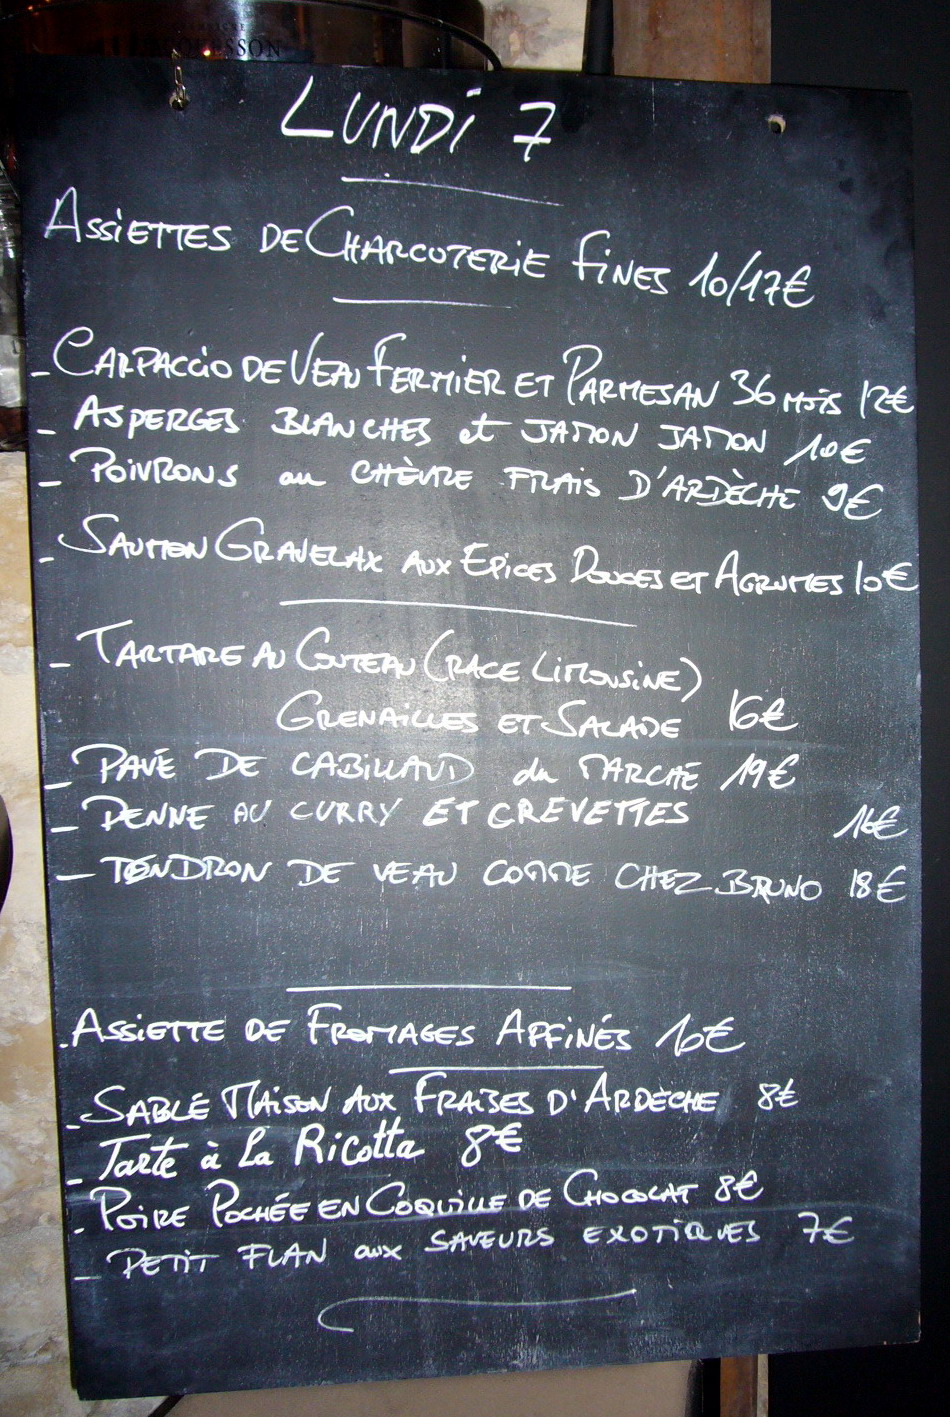 LUNDI 7
ASSIETTES DE CHARCUTERIE FINES 10/17€
- CARPACCIO DE VEAU FERMIER ET PARMESAN 36 MOIS 12€
- ASPERGES BLANCHES et JAMON JAMON 10€
- POIVRONS au CHÈVRE FRAIS D'ARDÈCHE 9€
- SAUMON GRAVELAX AUX EPICES DOUCES ET AGRUMES 10€
- TARTARE AU COUTEAU (RACE LIMOUSINE)
GRENAILLES ET SALADE 16€
- PAVÉ DE CABILLAUD du MARCHÉ 19€
- PENNE AU CURRY ET CREVETTES 16€
- TENDRON DE VEAU COMME CHEZ BRUNO 18€
. ASSIETTE DE FROMAGES AFFINÉS 10€
- SABLÉ MAISON AUX FRAISES D'ARDÈCHE 8€
- Tarte à La Ricotta 8€
- POIRE POCHÉE EN COQUILLE DE CHOCOLAT 8€
- PETIT FLAN aux SAVEURS EXOTIQUES 7€